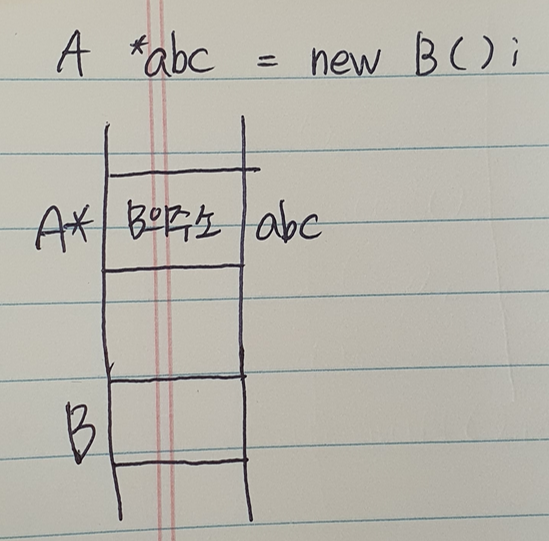 A *abc = new B();
A* B의주소 abc
B